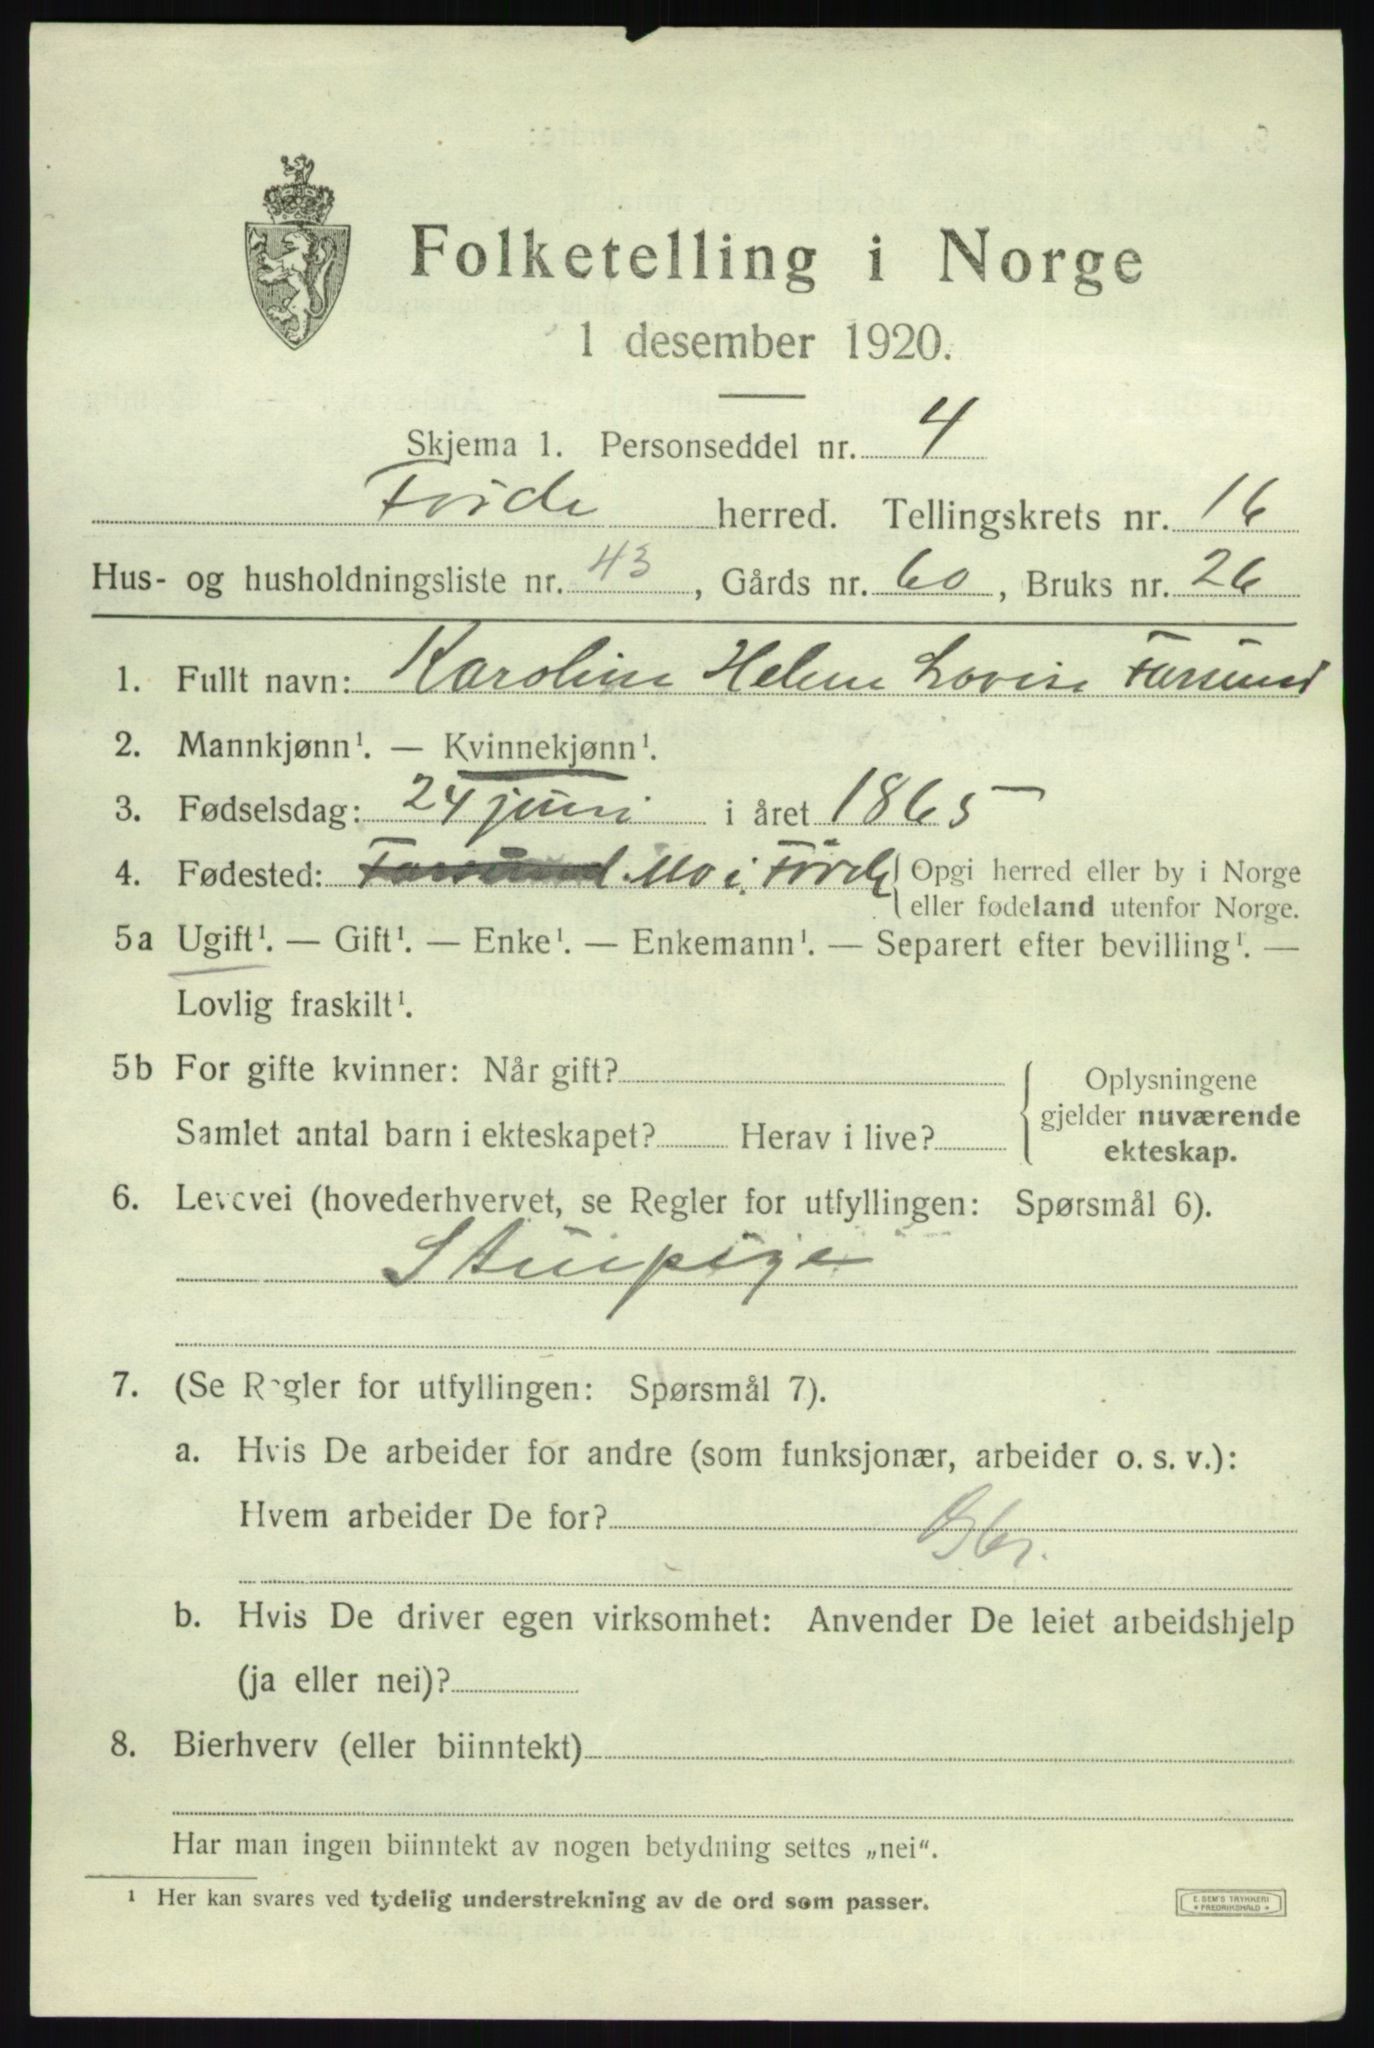 Folketelling i Norge
1 desember 1920.
Skjema 1. Personseddel nr. 4
Førde herred. Tellingskrets nr. 16
Hus- og husholdningsliste nr. 43, Gårds nr. 60, Bruks nr. 26
1. Fullt navn: Karoline Helene Lovise Farsund
2. Mannkjønn¹. — Kvinnekjønn¹.
3. Fødselsdag: 24 juni i året 1865
4. Fødested: Farsund Mo i Førde { Opgi herred eller by i Norge
eller fødeland utenfor Norge.
5a Ugift¹. — Gift¹. — Enke¹. — Enkemann¹. — Separert efter bevilling¹. —
Lovlig fraskilt¹.
5b For gifte kvinner: Når gift?
Samlet antal barn i ekteskapet? Herav i live?
Oplysningene
gjelder nuværende
ekteskap.
6. Levevei (hovederhvervet, se Regler for utfyllingen: Spørsmål 6).
Stuepige
7. (Se Regler for utfyllingen: Spørsmål 7).
a. Hvis De arbeider for andre (som funksjonær, arbeider o. s. v.):
Hvem arbeider De for?
b. Hvis De driver egen virksomhet: Anvender De leiet arbeidshjelp
(ja eller nei)?
8. Bierhverv (eller biinntekt)
Har man ingen biinntekt av nogen betydning settes „nei“.
¹ Her kan svares ved tydelig understrekning av de ord som passer.
E. SEM'S TRYKKERI
* FREDRIKSHALD *